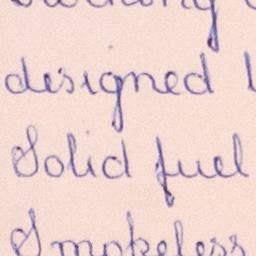 designed
Solid fuel
Smokeless